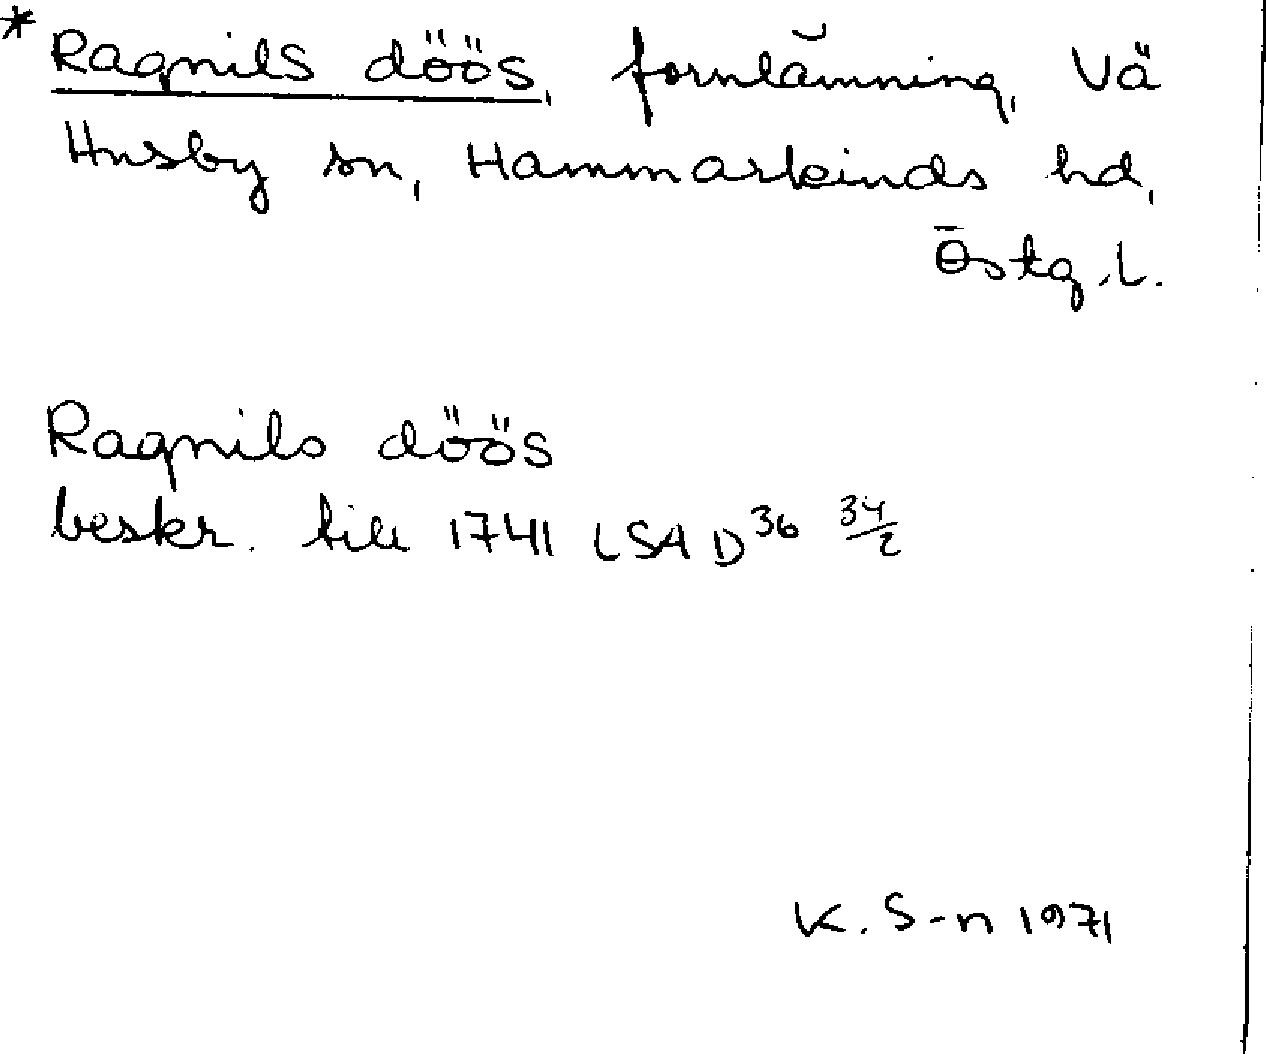 * Ragnils döös, fornlämning, Vä
Husby sn, Hammarkinds hd,
Östg.l.
Ragnils döös
beskr. till 1741 LSA D36 34/2
K. S-n 1971